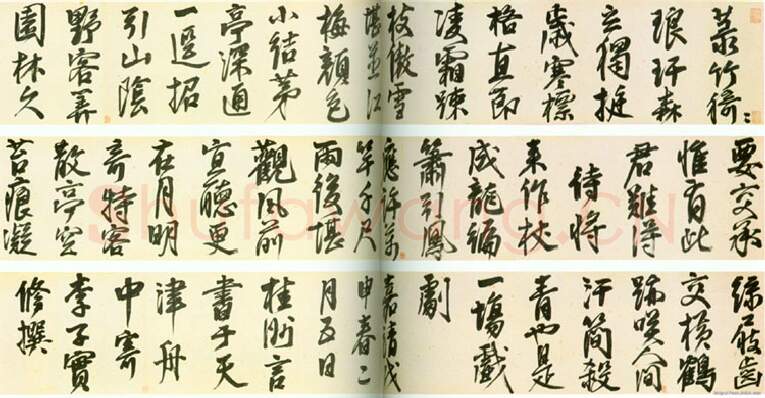 菉竹猗〻
琅玕森
立獨挺
歲寒標
格直節
凌霜踈
枝傲雪
堪並江
梅顏色
小結茅
亭深通
一逕招
引山陰
野客
園林久
要交承
惟有此
君難得
待將
來作杖
成龍編
簫引鳳
應許萬
竿千尺
雨後堪
觀風前
宜聽更
在月明
奇特客
散亭空
苔痕凝
綠屐齒
交橫鶴
跡咲人間
汗簡殺
青也是
一場戲
劇
嘉靖戊
申春二
月五日
桂洲言
書于天
津舟
中寄
李子實
修撰
Shufawang.CN